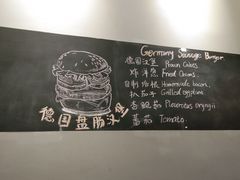 Germany Sausage Burger
德国汉堡 Prawn Cakes
炸洋葱 Fried Onions.
自制培根 Homemade bacon.
扒茄子 Grilled eggplant
杏鲍菇 Pleurotus eryngii
蕃茄 Tomato.
德国盘肠汉堡